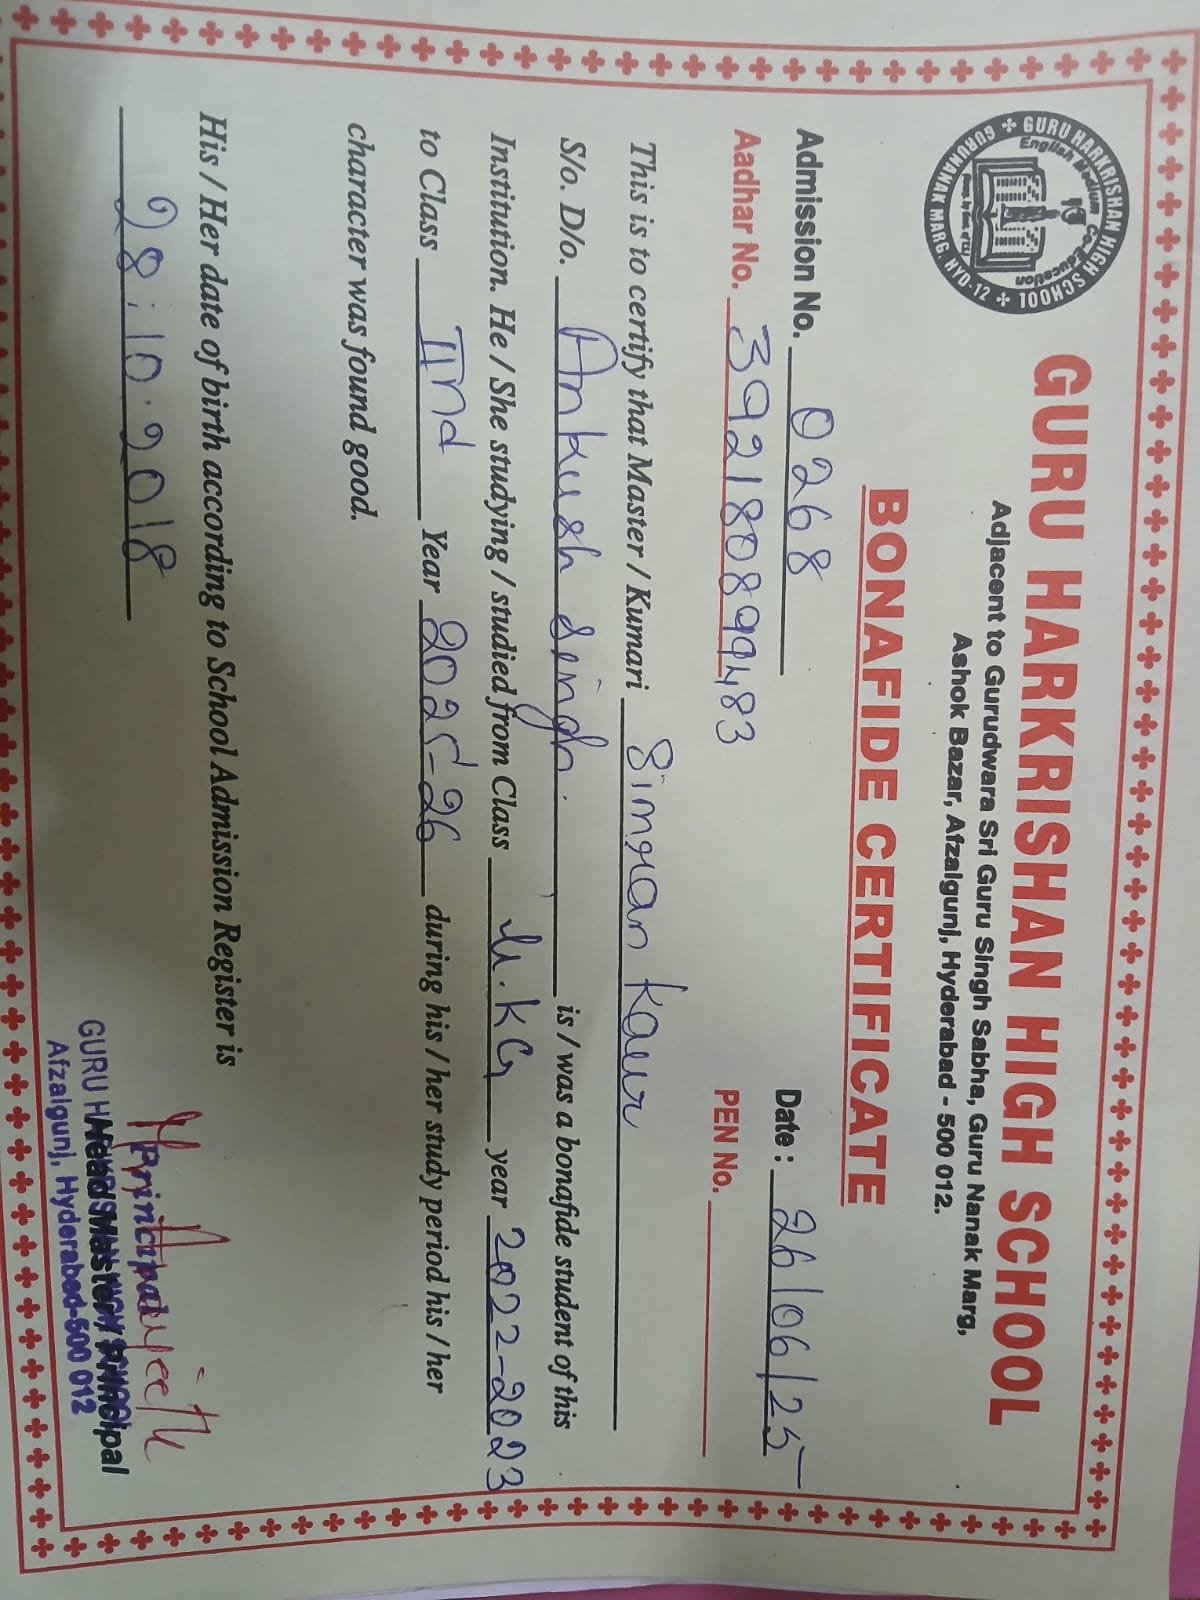 GURU HARKRISHAN HIGH SCHOOL
English Medium Co. Education
GURUNANAK MARG, HYD-12
GURU HARKRISHAN HIGH SCHOOL
Adjacent to Gurudwara Sri Guru Singh Sabha, Guru Nanak Marg,
Ashok Bazar, Afzalgunj, Hyderabad - 500 012.
BONAFIDE CERTIFICATE
Admission No. 0268 Date : 26/06/25
Aadhar No. 392180899483 PEN No.
This is to certify that Master / Kumari Simran Kaur
S/o. D/o. Ankush Singh. is / was a bonafide student of this
Institution. He / She studying / studied from Class K.G year 2022-2023
to Class IInd Year 2025-26 during his / her study period his / her
character was found good.
His / Her date of birth according to School Admission Register is
28:10.2018
Principal
Head Master / Principal
GURU HARKRISHAN HIGH SCHOOL
Afzalgunj, Hyderabad-500 012